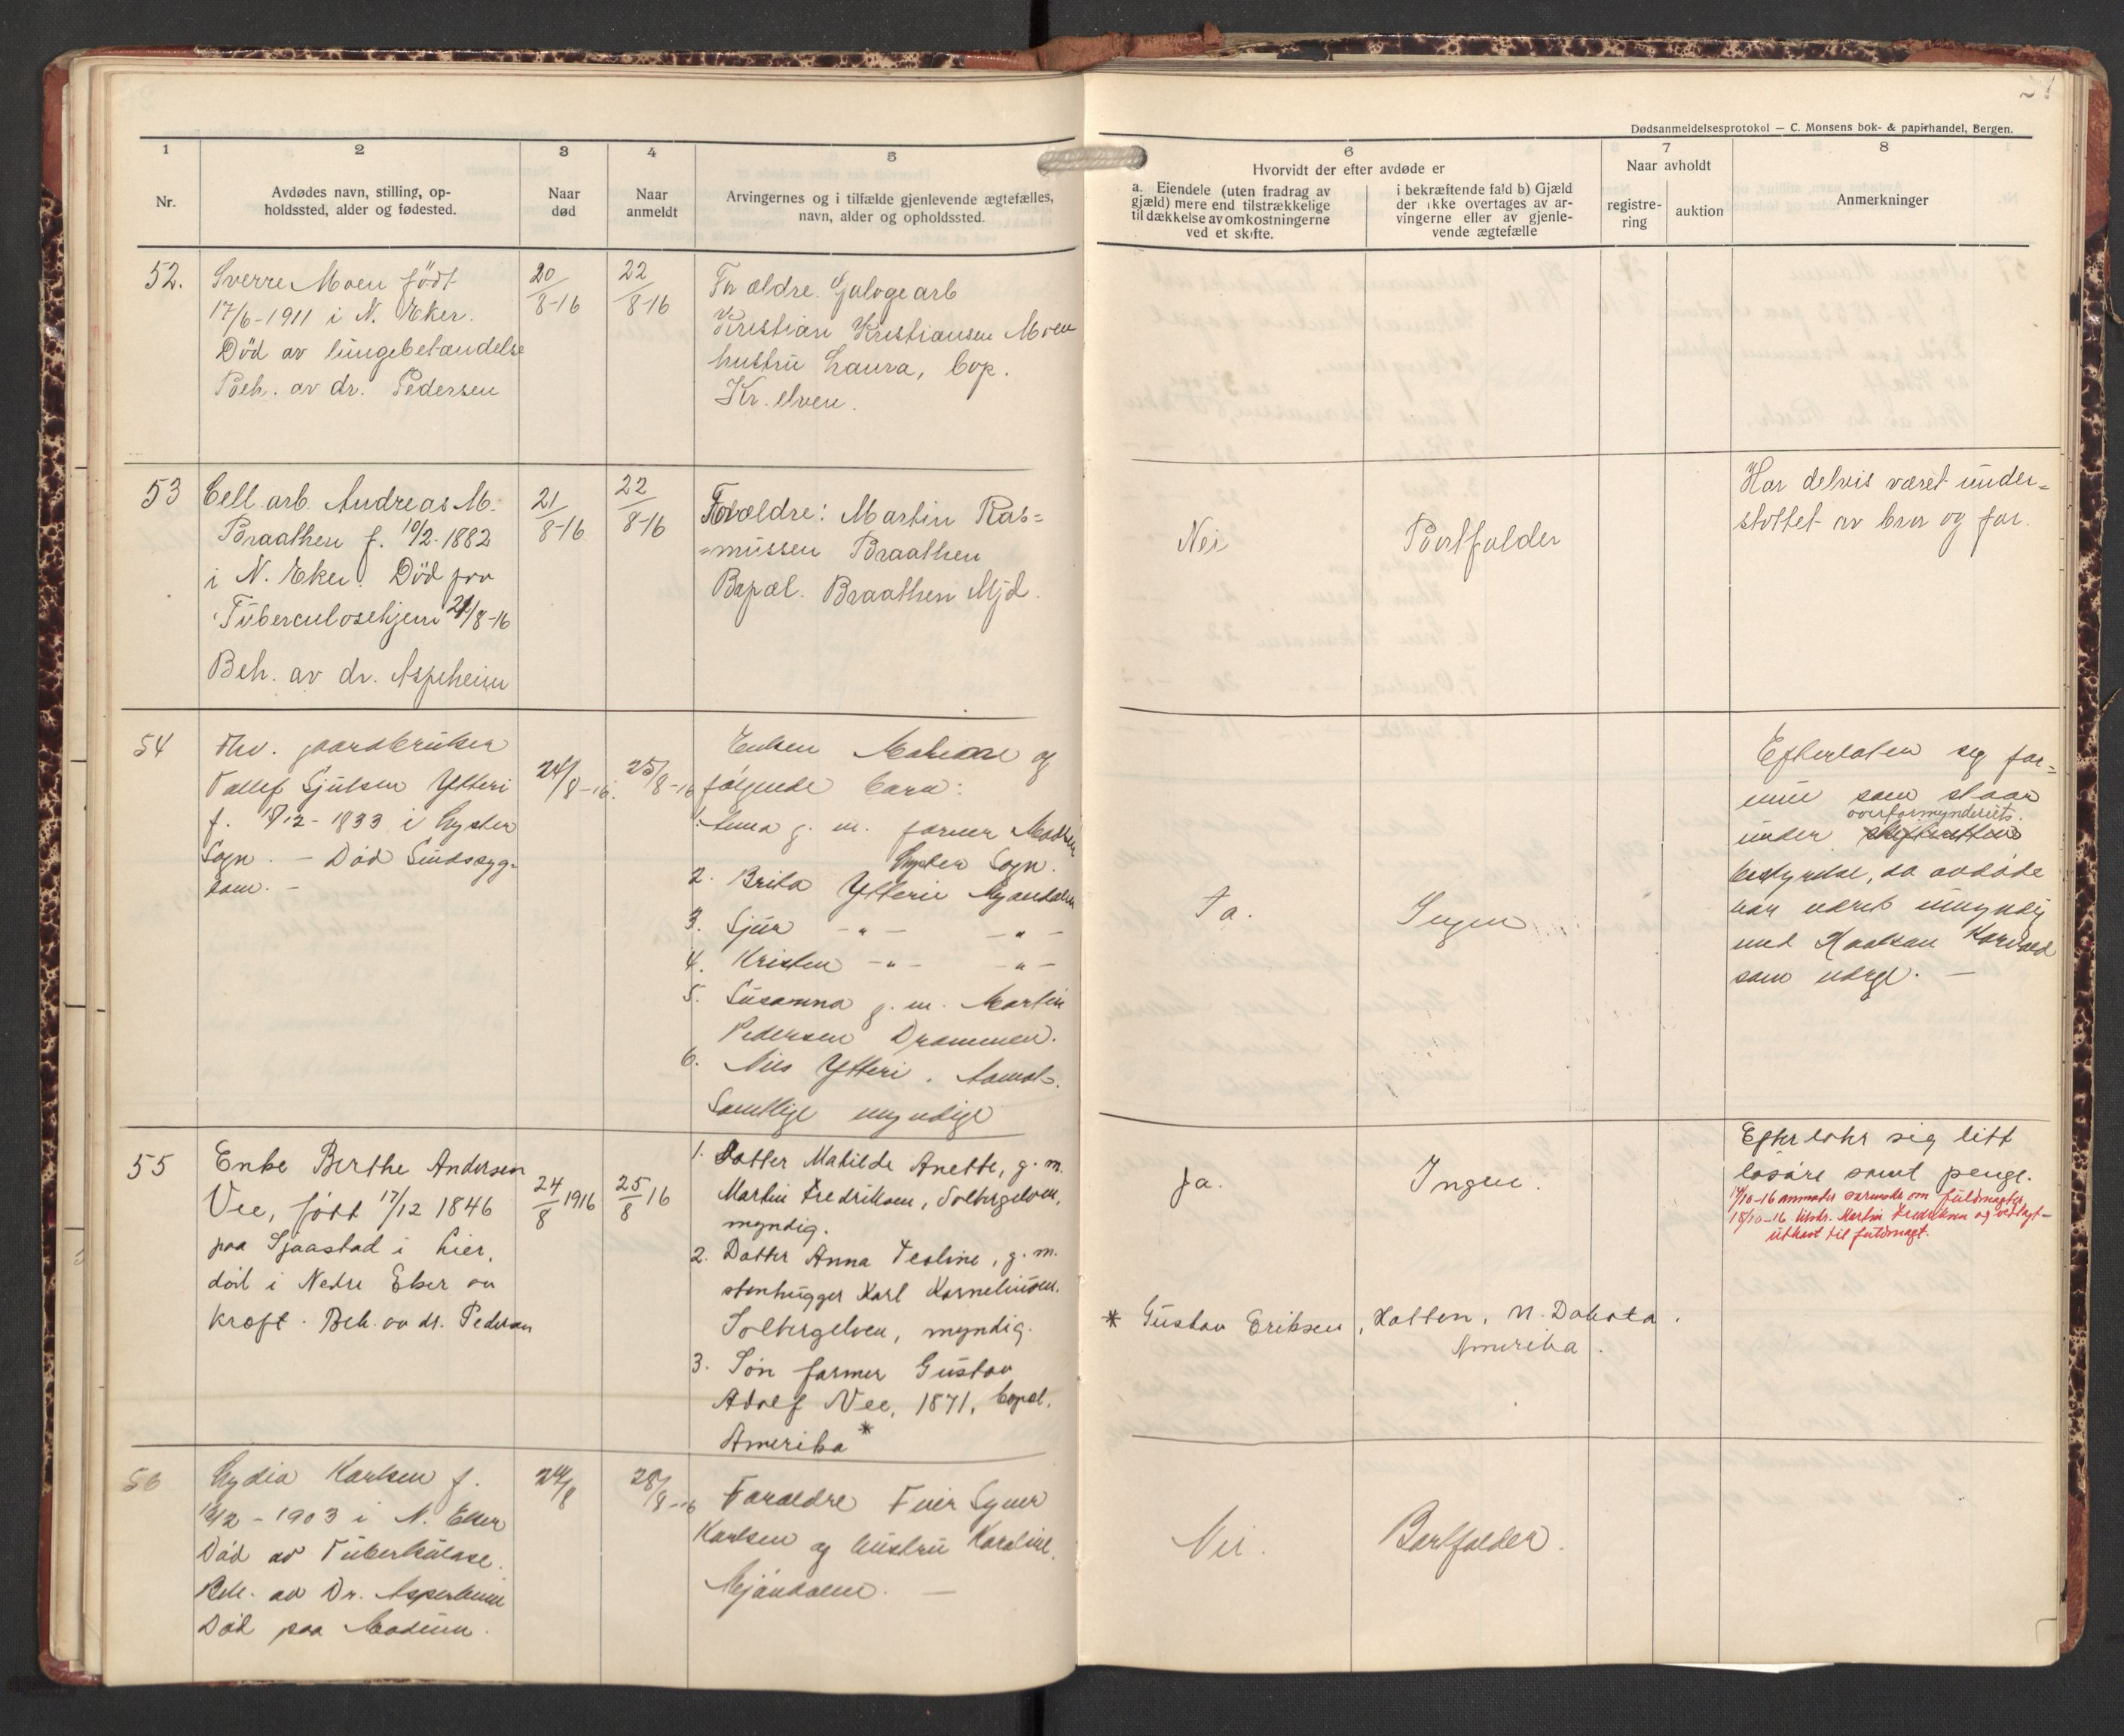 Dødsanmeldelsesprotokol — C. Monsens bok- & papirhandel, Bergen.
1 2 3 4 5
Nr.
Avdødes navn, stilling, op-
holdssted, alder og fødested.
Naar
død
Naar
anmeldt
Arvingernes og i tilfælde gjenlevende ægtefælles,
navn, alder og opholdssted.
6 7 8
Hvorvidt der efter avdøde er
a. Eiendele (uten fradrag av
gjæld) mere end tilstrækkelige
til dækkelse av omkostningerne
ved et skifte.
i bekræftende fald b) Gjæld
der ikke overtages av ar-
vingerne eller av gjenle-
vende ægtefælle
Naar avholdt
registre-
ring
auktion
Anmerkninger
52.
Sverre Moen født
17/6-1911 i N. Eker.
Død av lungebetændelse
Beh. av dr. Pedersen
20/8-16
22/8-16
Forældre
Kristian Kristiansen Moen
hustru Laura, bop.
Kr. elven.
53
Cell. arb. Andreas M.
Braathen f. 10/2-1882
i N. Eker. Død paa
Tuberculosehjem 21/8-16
Beh. av dr. Aspeheim
21/8-16
22/8-16
Forældre: Martin Ras=
=mussen Braathen
Bopæl. Braathen Mjd.
Nei
Bortfalder
Har delvis været under=
støttet av bror og far.
54
Fhv. gaardbruker
Tollef Sjulsen Ytteri
1833 i Lyster
Sogn. - Død Sindssyg-
dom. -
24/8-16.
25/8-16
Enken og
følgende barn:
1. Anna g. m. farmer
Lyster Sogn.
2. Brita Ytterie Mjøndalen
3. Sjur -"- -"-
4. Kristen -"- -"-
5. Susanna g. m. Martin
Pedersen Drammen.
6. Nils Ytteri.
Samtlige myndige
Ja.
Ingen
Efterlater sig for=
mue som staar
overformynderiets.
under
bestyrelse, da avdøde
har været umyndig
med
som verge. -
55
Enke Berthe Andersen
Vee, født 17/12 1846
paa Sjaastad i Lier,
død i Nedre Eker av
kræft. Beh. av dr. Pedersen
24/8 1916
25/8 16
1. Datter Matilde Anette, g. m.
Martin Fredriksen, Solbergelven,
myndig.
2. Datter Anna Teoline, g. m.
stenhugger Karl Korneliussen,
Solbergelven, myndig.
3. Søn farmer Gustav
Adolf Vee, 1871, bopæl,
Amerika *
Ja.
Ingen.
Efterlater sig litt
løsøre samt penge.
14/10-16 anmodet om fuldmagter
18/10-16 Martin Fredriksen og vedlagt
utkast til fuldmagt.
* Gustav Eriksen, Hatton, N. Dakota.
Amerika.
56
Lydia Karlsen f.
1903 i N. Eker
Død av Tuberkulose.
Beh. av Dr. Aspeheim
Død paa Modum.
24/8
28/8-16
Forældre
Karlsen og hustru Karoline
Mjøndalen. -
Nei.
Bortfalder.